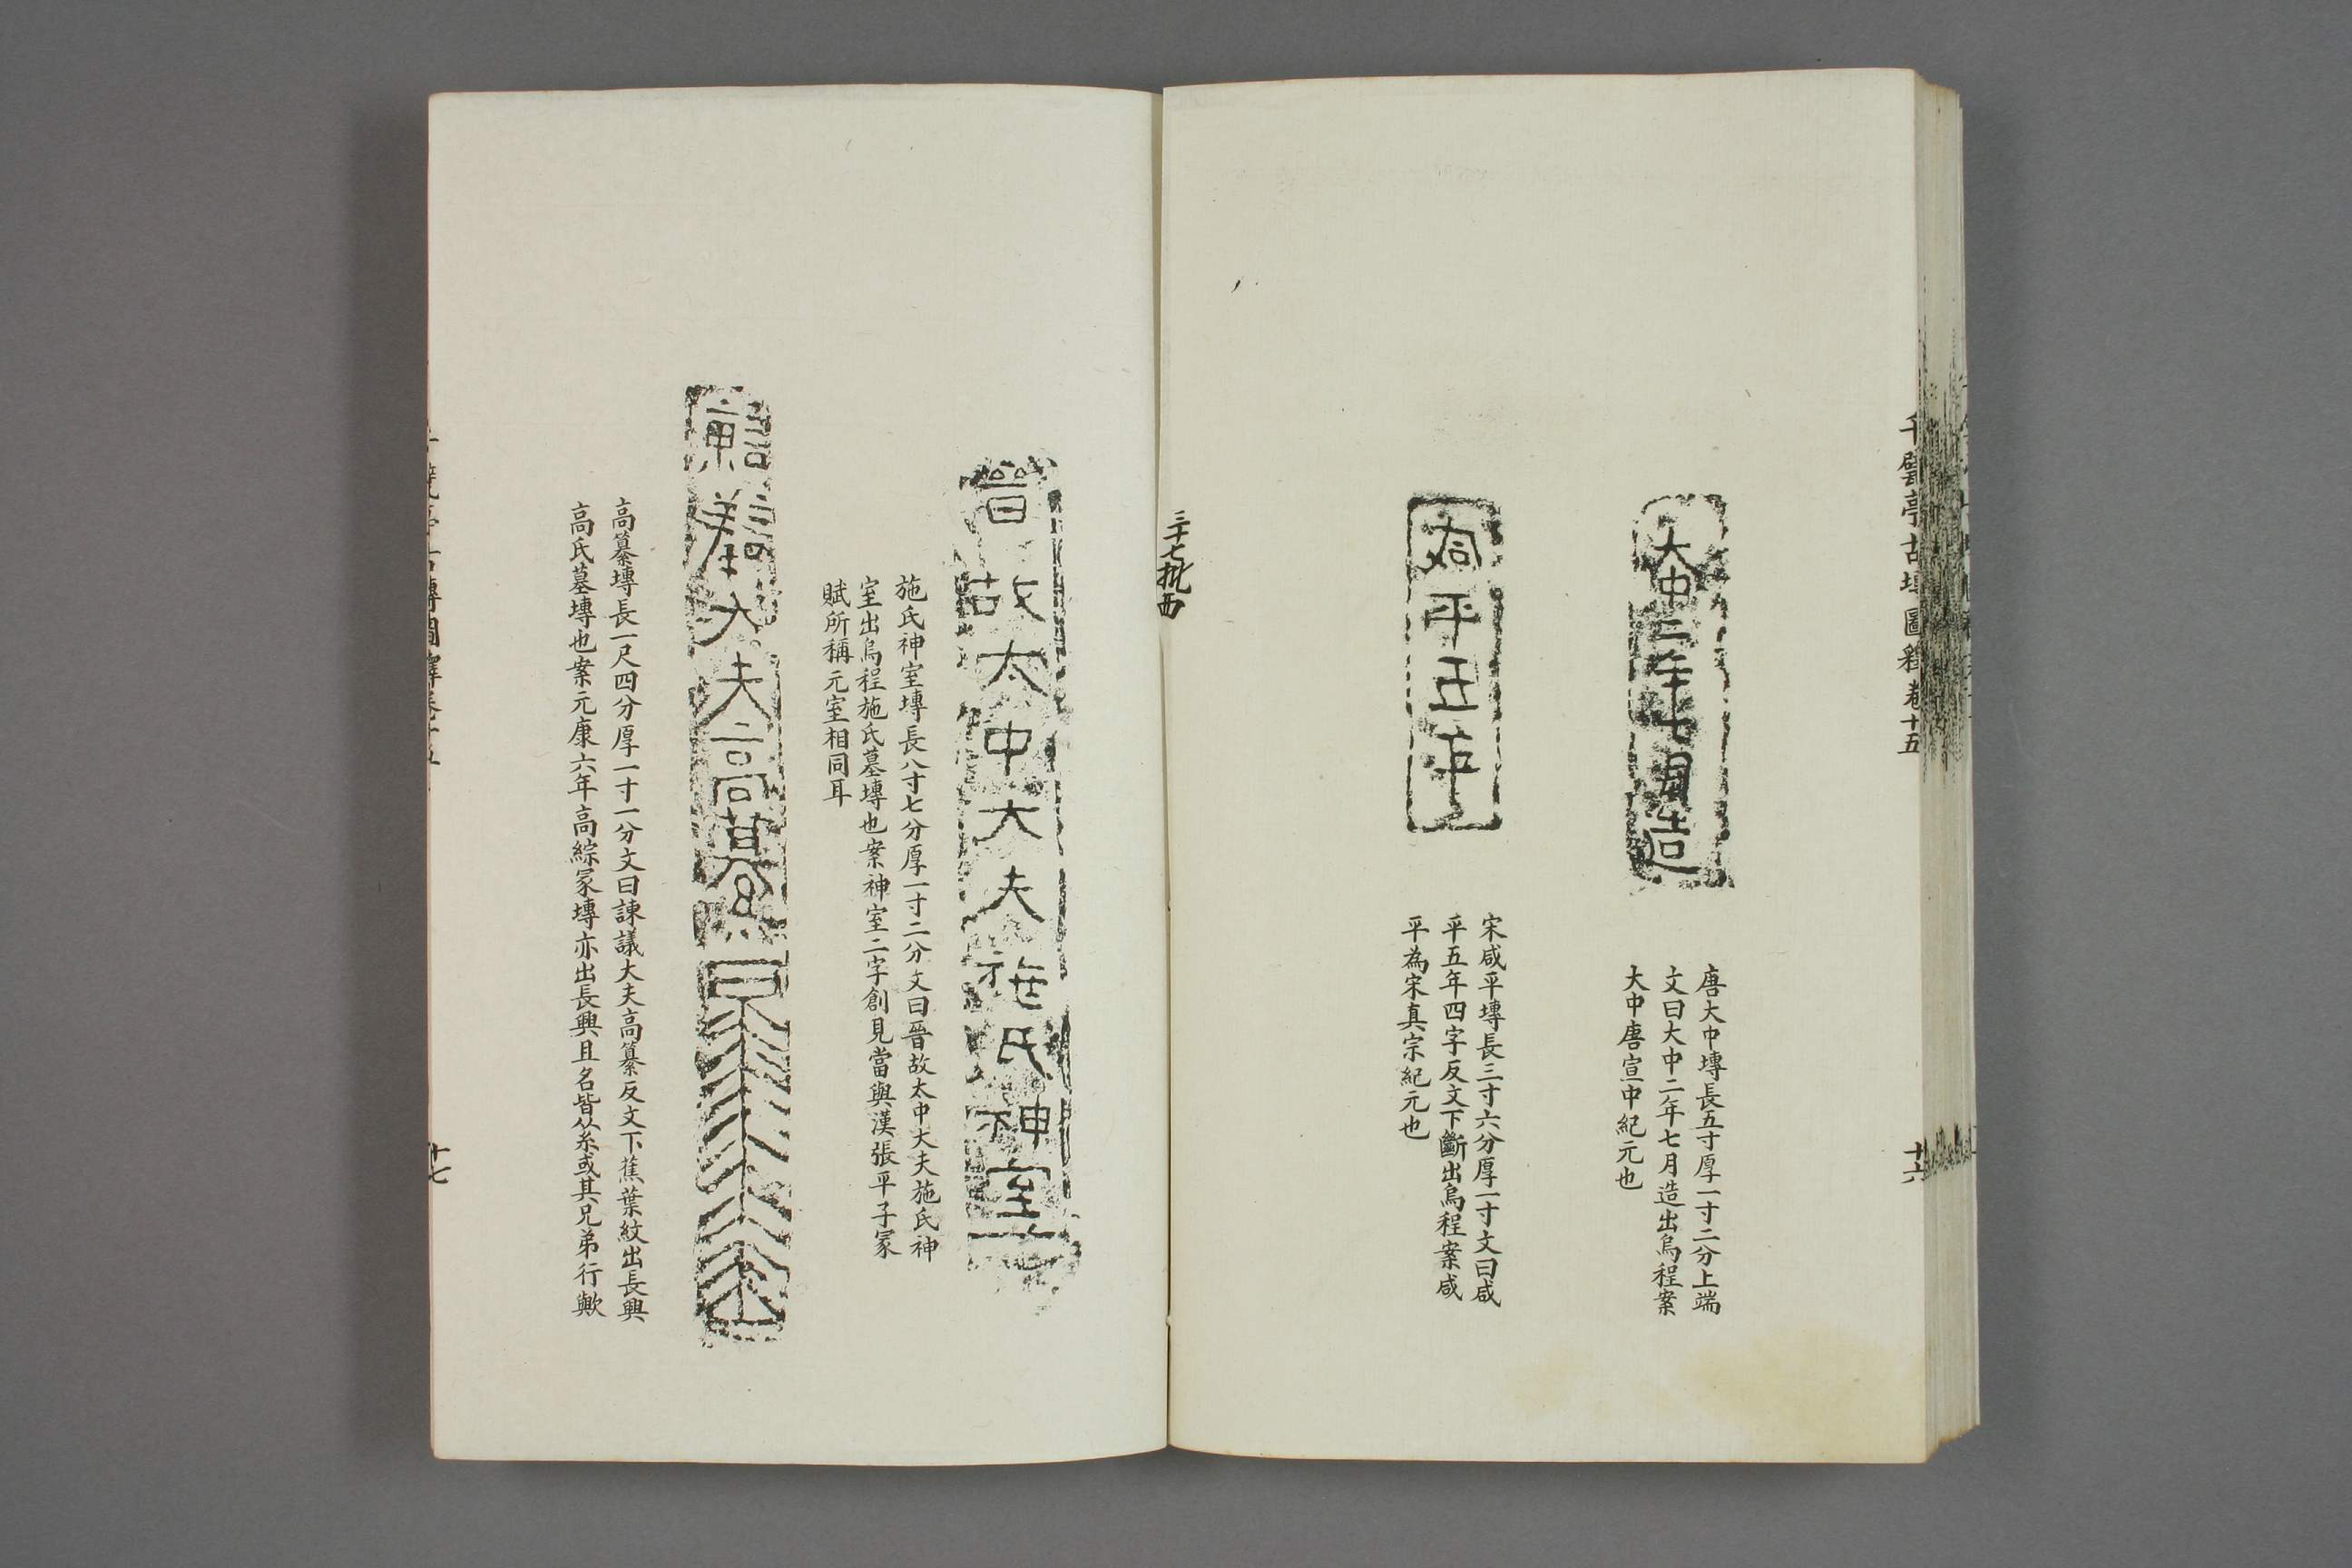 千甓亭古塼圖釋卷十五
十六
大中二年七月造
唐大中塼長五寸厚一寸二分上端
文曰大中二年七月造出烏程案
大中唐宣中紀元也
咸平五年
宋咸平塼長三寸六分厚一寸文曰咸
平五年四字反文下斷出烏程案咸
平為宋真宗紀元也
三十七批西
晉故太中大夫施氏神室
施氏神室塼長八寸七分厚一寸二分文曰晉故太中大夫施氏神
室出烏程施氏墓塼也案神室二字創見當與漢張平子冢
賦所稱元室相同耳
諫議大夫高纂
高纂塼長一尺四分厚一寸一分文曰諫議大夫高纂反文下蕉葉紋出長興
高氏墓塼也案元康六年高綜冢塼亦出長興且名皆从糸或其兄弟行歟
千甓亭古塼圖釋卷十五
十七